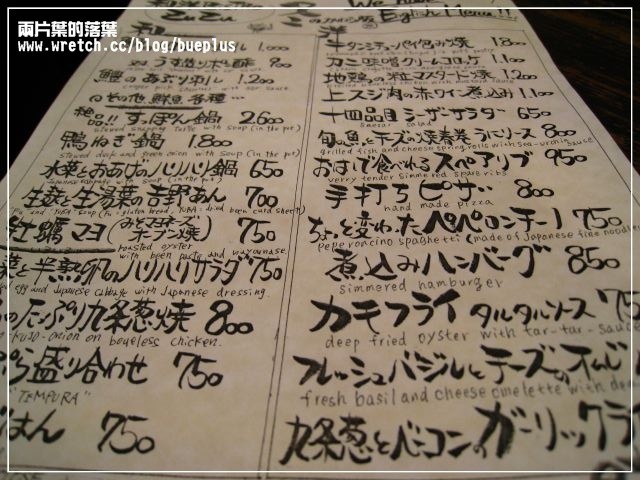 兩片葉的落葉
www.wretch.cc/blog/bueplus
We have
English Menu!!
1.000
うす造りポン酢 800
鱧のあぶりポン 1.200
その他鮮魚各種…
絶品!! すっぽん鍋 2.600
stewed snapping turtle with soup (in the pot)
鴨ねぎ鍋 1.800
stewed duck and fresh onion with soup (in the pot)
水菜とおあげのハリハリ鍋 650
Japanese cabbage with soup (in the pot)
生麸と生湯葉の吉野あん 700
牡蠣マヨ (みそマヨネーズオーブン焼) 750
roasted oyster
with bean paste and mayonnaise
菜と半熟卵のハリハリサラダ 750
egg and Japanese cabbage with Japanese dressing
のたっぷり九条葱焼 800
KUJO-onion on boneless chicken.
ぷら盛り合わせ 750
"TEMPURA"
ごはん 750
洋
牛タンシチューパイ包み焼 1.800
カニ味噌クリームコロッケ 1.100
地鶏の粒マスタード焼 1.200
上スジ肉の赤ワイン煮込み 1.100
十四品目シーザーサラダ 650
caesar salad
旬の魚とチーズの春巻うにソース 800
grilled fish and cheese spring rolls with sea-urchin sauce
おはしで食べれるスペアリブ 950
very tender simmered spare ribs
手打ちピザ 800
hand made pizza
ちょっと変わったペペロンチーノ 750
peperoncino spaghetti (made of Japanese fine noodles
煮込みハンバーグ 850
simmered hamburger
カキフライ タルタルソース 75
deep fried oyster with tar-tar-sauce
フレッシュバジルとチーズのオムレ
fresh basil and cheese omelette with
九条葱とベーコンのガーリックラ